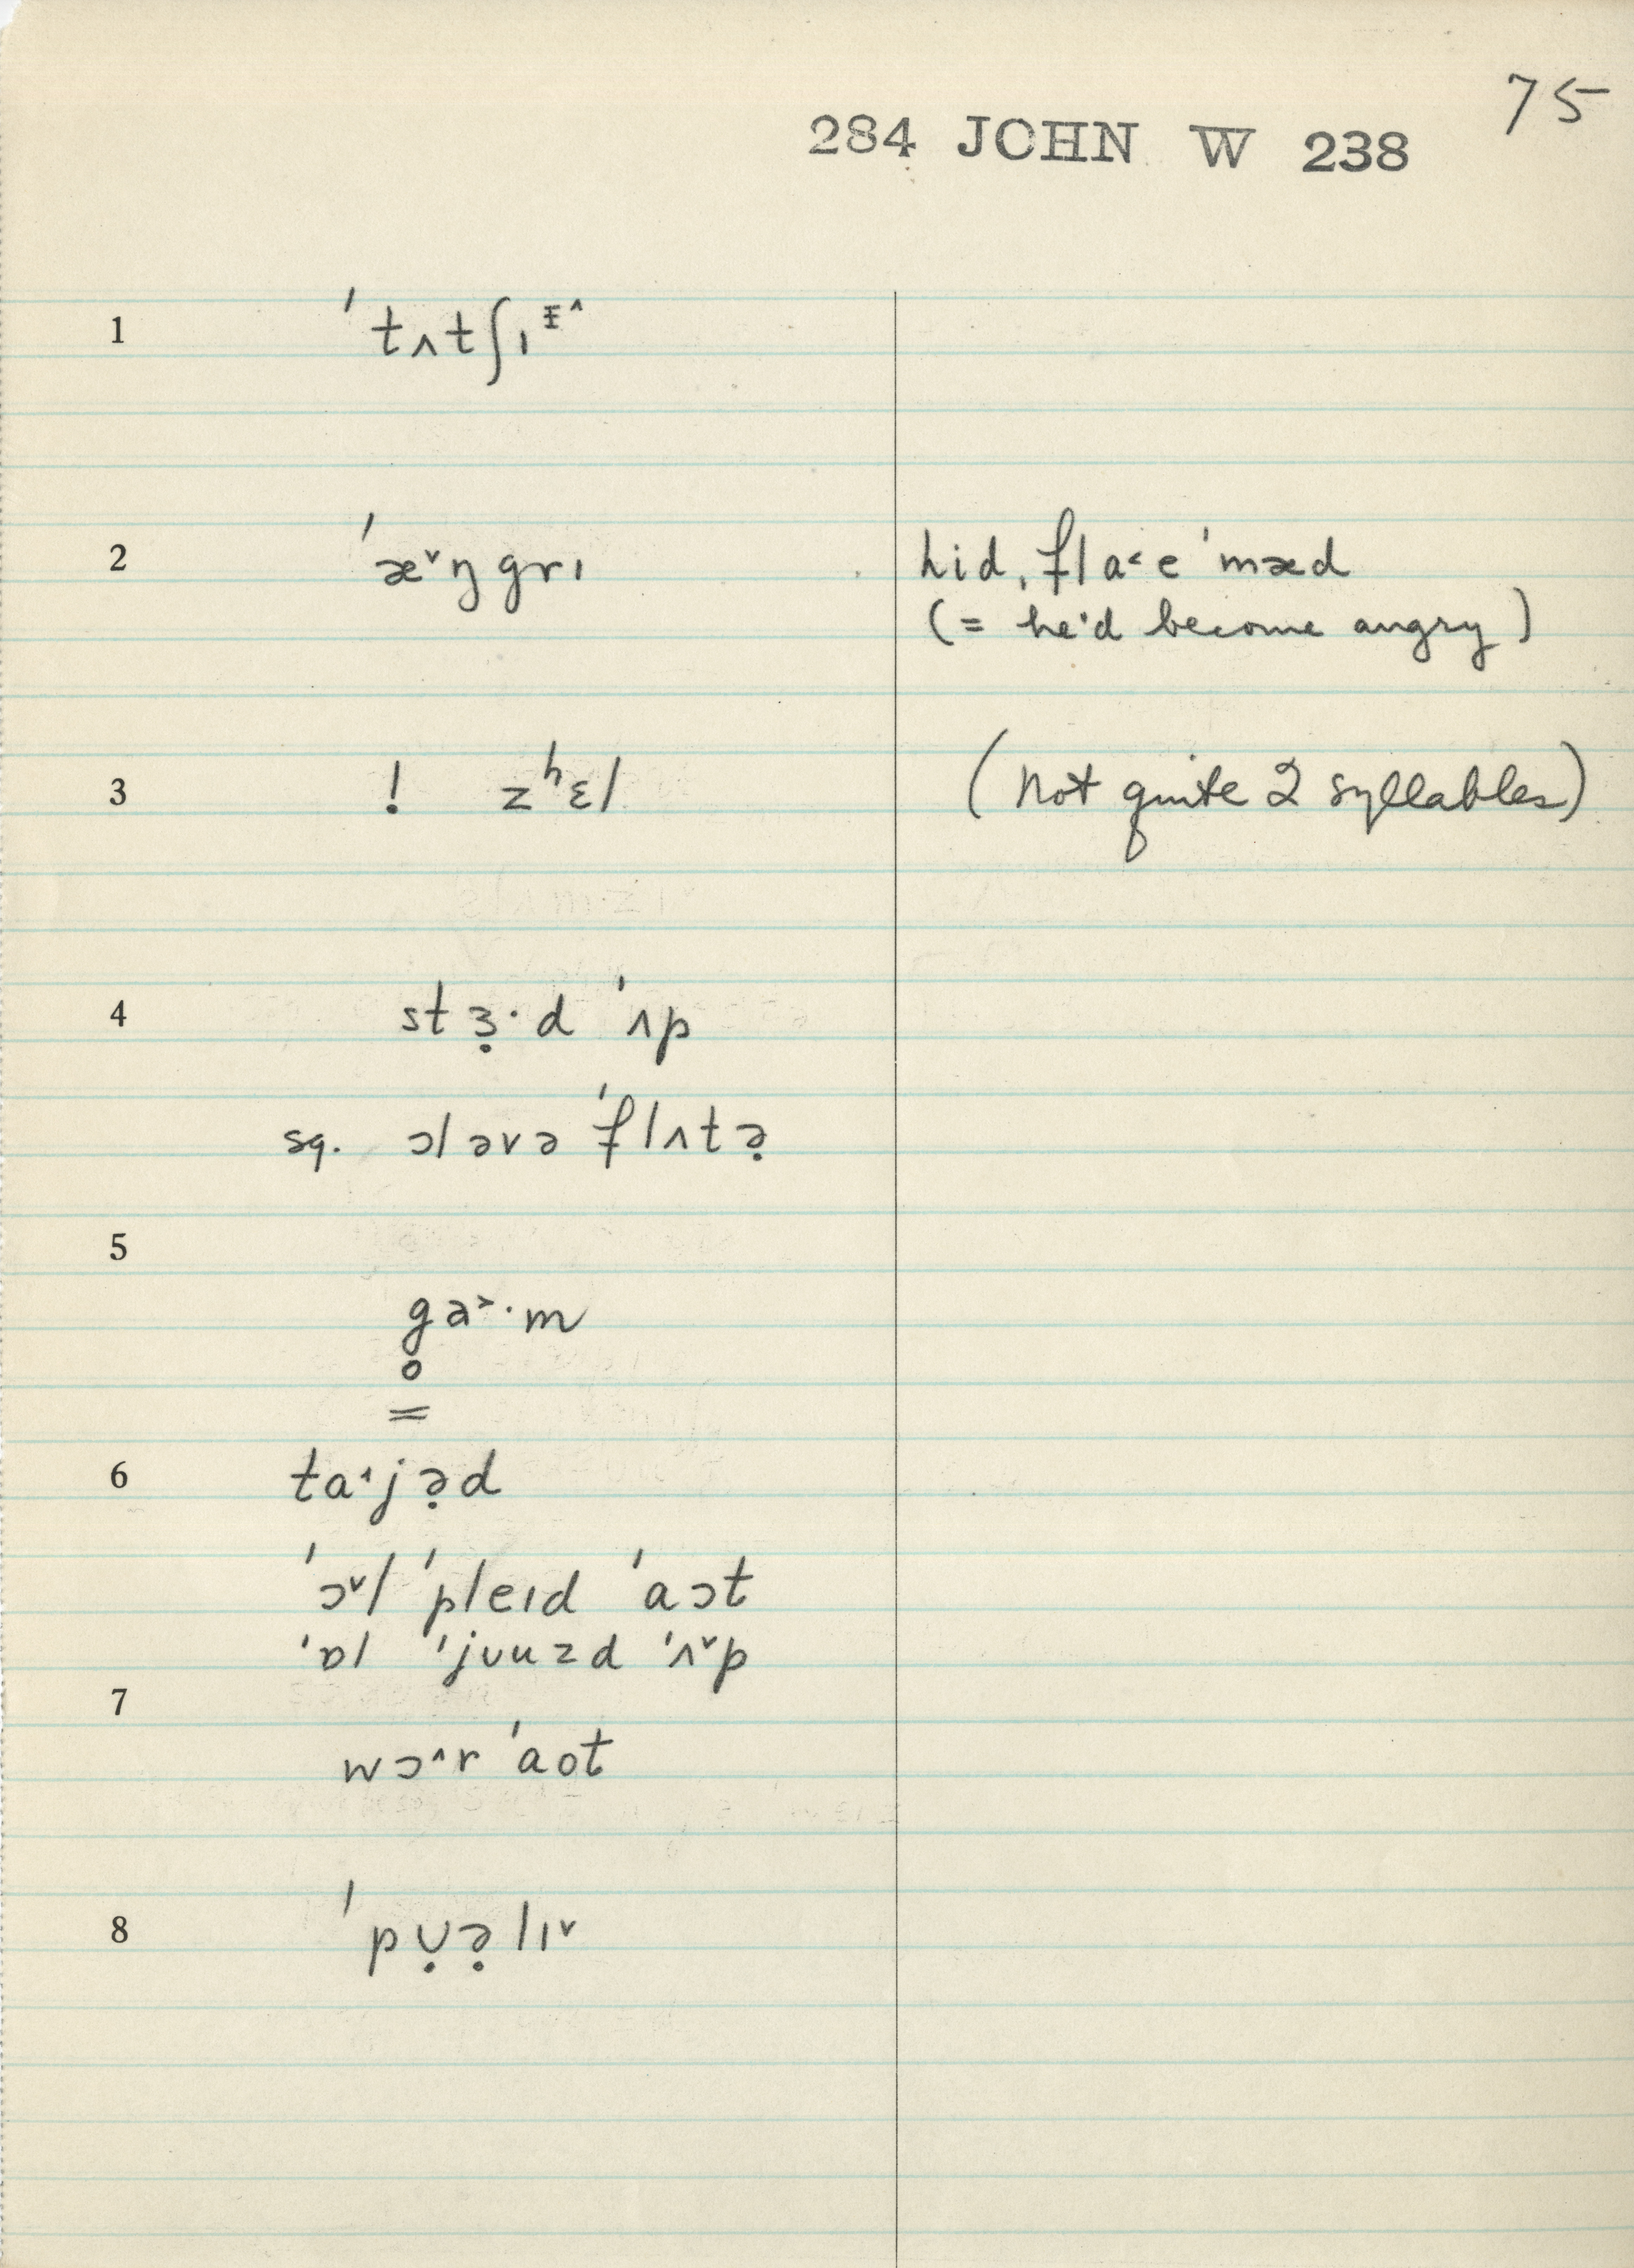 75
284 JOHN W 238
1 ˈtʌtʃɪᵻ^
2 ˈæ˅ŋgrɪ hid ˌfla˂e ˈmæd
(= he'd become angry)
3 ! zʰɛl (not quite 2 syllables)
4 stɜ̣·d ˈʌp
sq. ɔləvə ˈflʌtə̣
5
ga˃·m
6 ta˔jə̣d
ˈɔ˅l ˈpleɪd ˈaɔt
ˈɒl ˈjʊuzd ˈʌ˅p
7
wɔ^r ˈaot
8 ˈpʊ̣ə̣lɪ˅